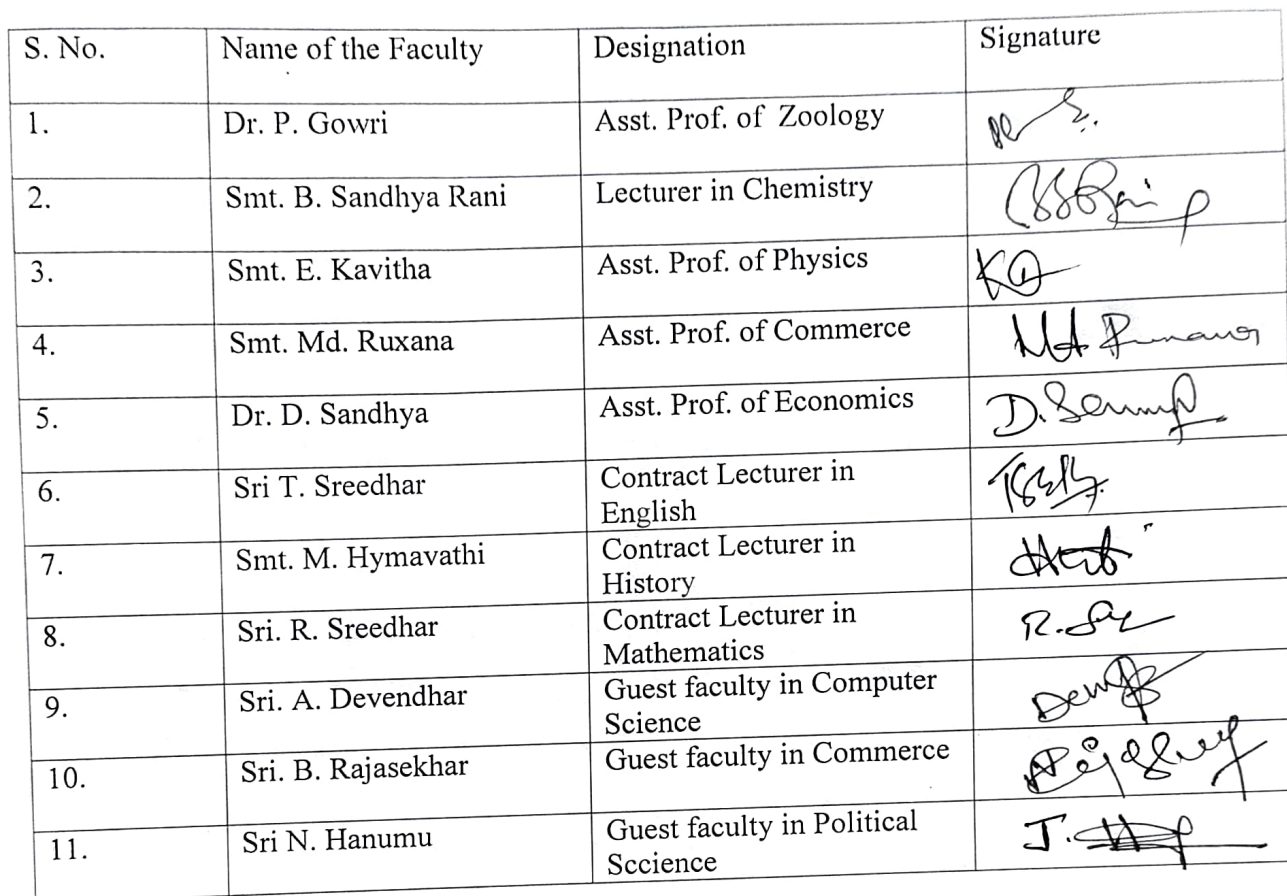 S. No. Name of the Faculty Designation Signature
1. Dr. P. Gowri Asst. Prof. of Zoology
2. Smt. B. Sandhya Rani Lecturer in Chemistry
3. Smt. E. Kavitha Asst. Prof. of Physics
4. Smt. Md. Ruxana Asst. Prof. of Commerce
5. Dr. D. Sandhya Asst. Prof. of Economics D.
6. Sri T. Sreedhar Contract Lecturer in
English
7. Smt. M. Hymavathi Contract Lecturer in
History
8. Sri. R. Sreedhar Contract Lecturer in R.
Mathematics
9. Sri. A. Devendhar Guest faculty in Computer
Science
10. Sri. B. Rajasekhar Guest faculty in Commerce
11. Sri N. Hanumu Guest faculty in Political J.
Sccience